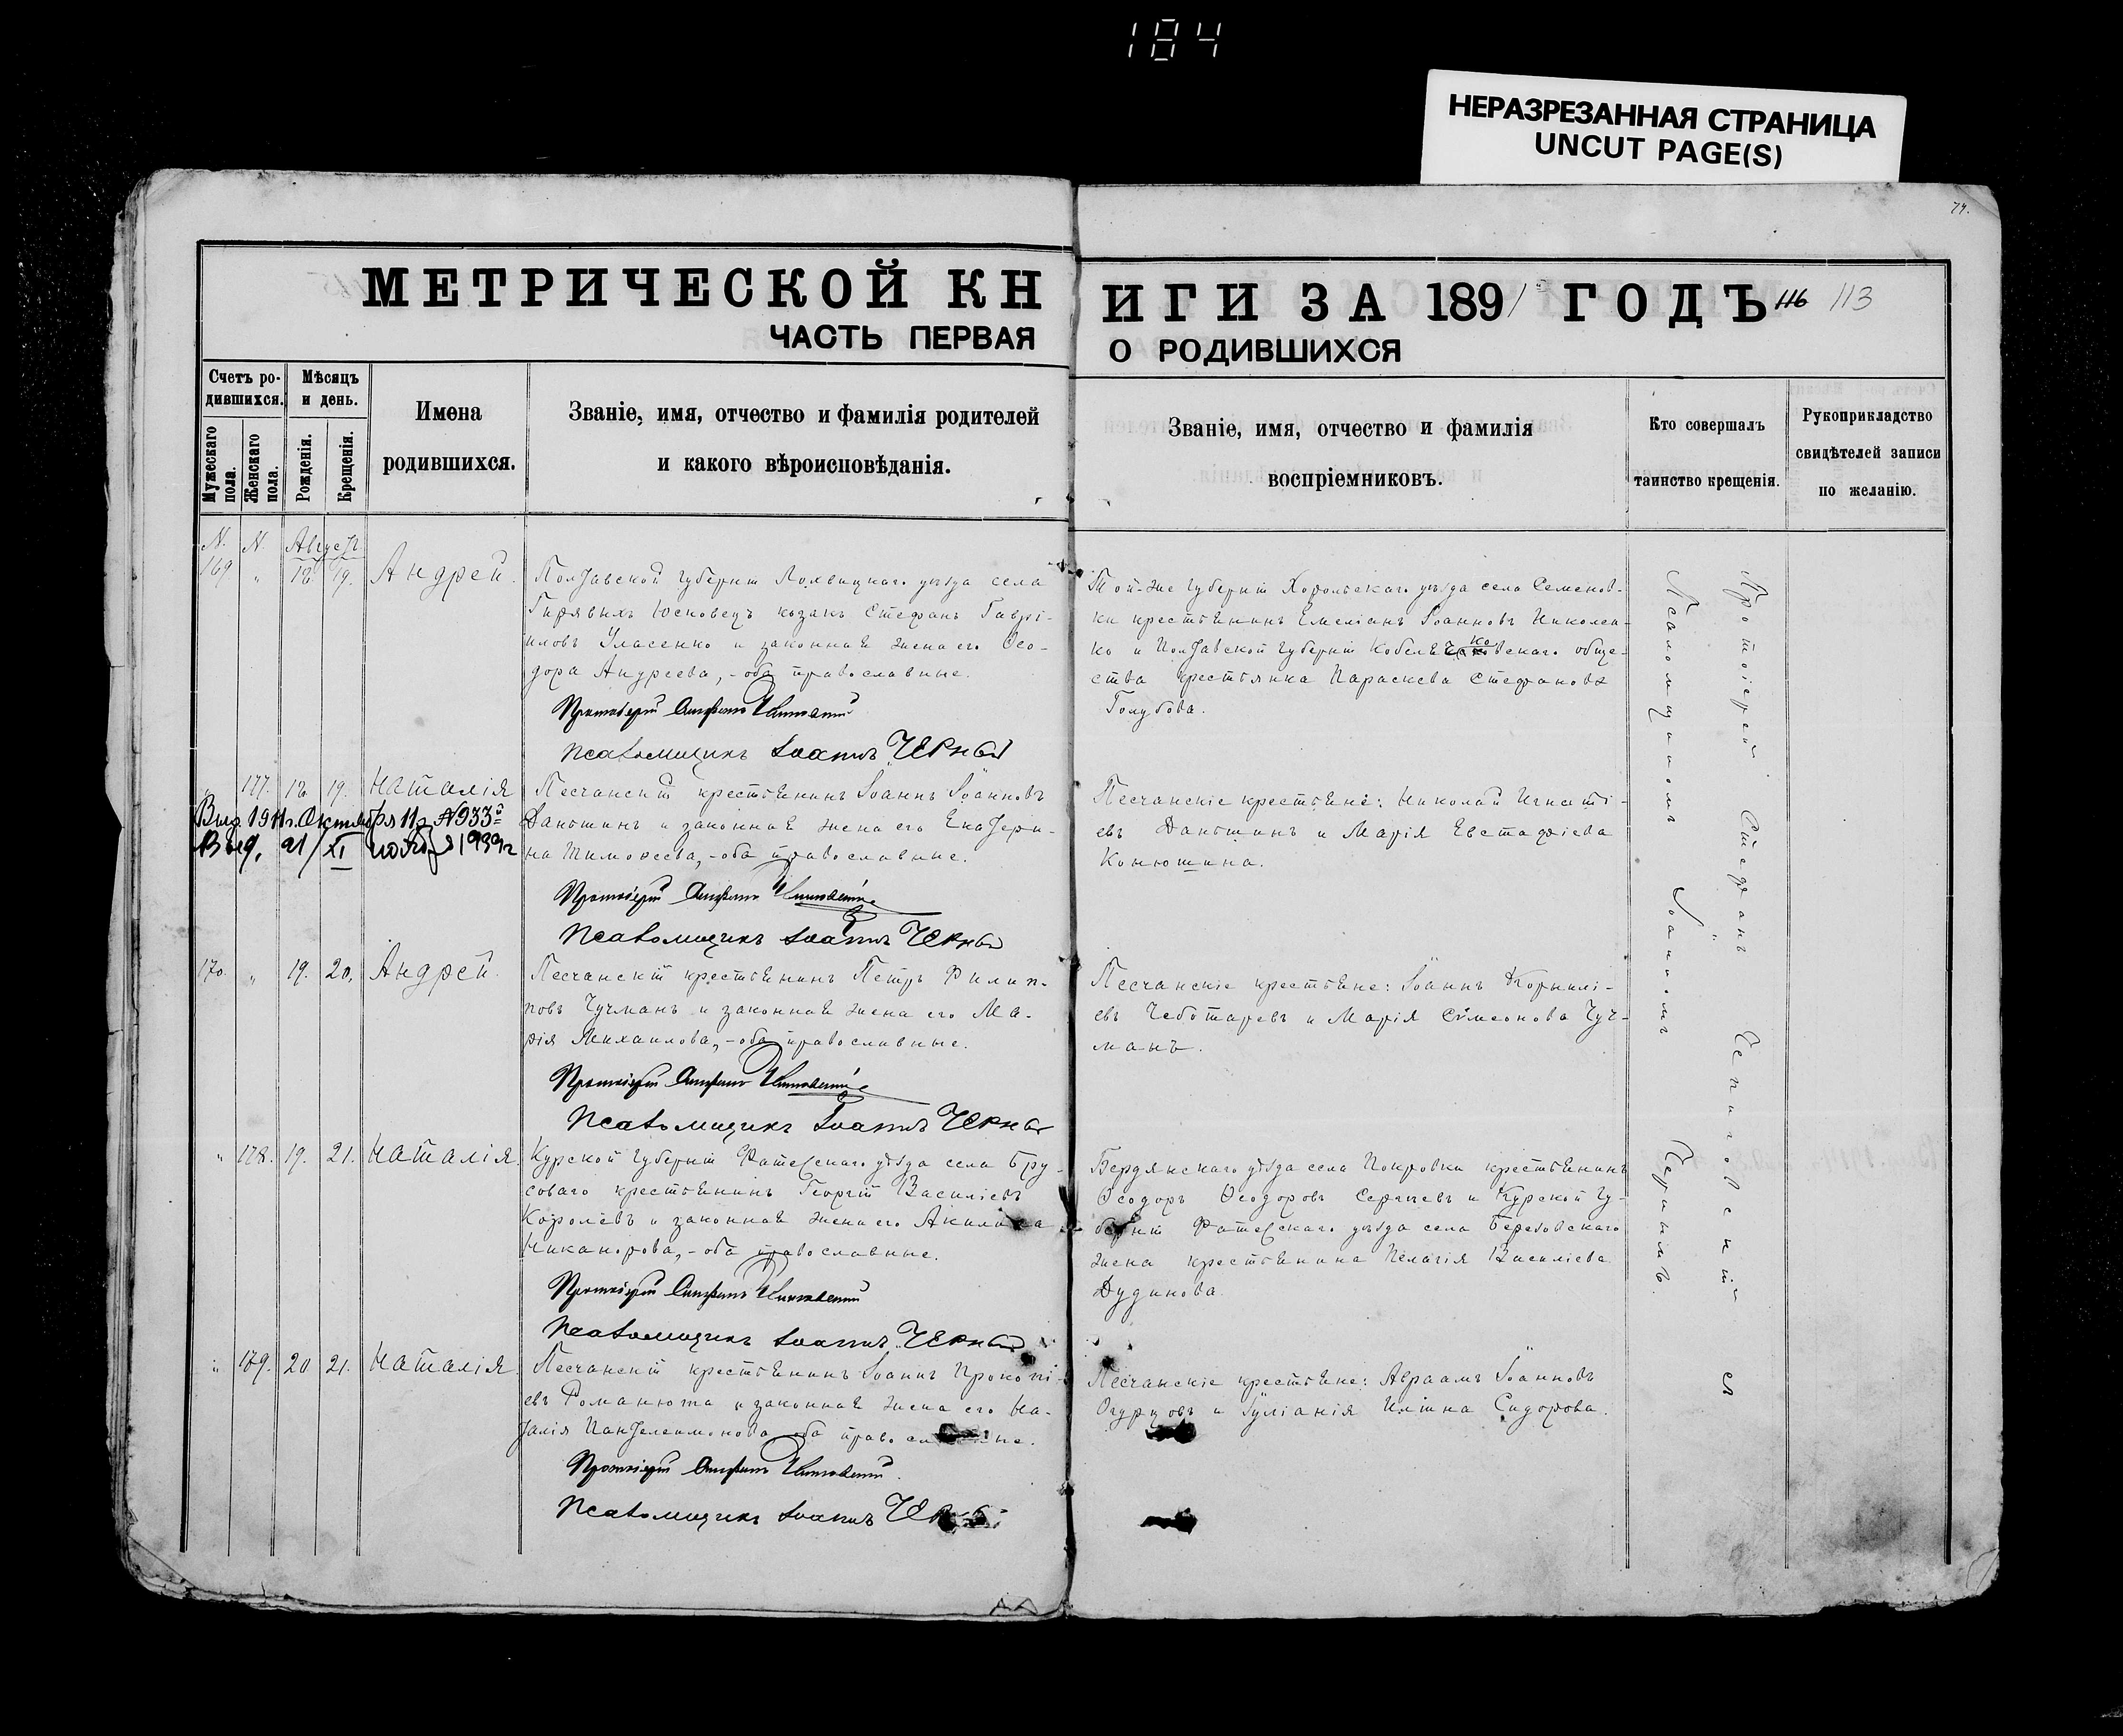 184
НЕРАЗРЕЗАННАЯ СТРАНИЦА
UNCUT PAGE(S)
74.
МЕТРИЧЕСКОЙ КНИГИ ЗА 1891 ГОДЪ 116 113
ЧАСТЬ ПЕРВАЯ О РОДИВШИХСЯ
Счетъ ро-
дившихся.
Мужескаго пола.
Женскаго пола.
Мѣсяцъ
и день.
Рожденія.
Крещенія.
Имена
родившихся.
Званіе, имя, отчество и фамилія родителей
и какого вѣроисповѣданія.
Званіе, имя, отчество и фамилія
воспріемниковъ.
Кто совершалъ
таинство крещенія.
Рукоприкладство
свидѣтелей записи
по желанію.
N. N. Август.
169 " 18. 19. Андрей.
Полтавской губерніи Лохвицкаго уѣзда села
Гирявихъ Юсковецъ козакъ Стефанъ Гаврі-
иловъ Уласенко и законная жена его Ѳео-
дора Андреева, - оба православные.
Протоіерей Стефанъ
Псаломщикъ Іоаннъ Черный
Той-же губерніи Хорольскаго уѣзда села Семенов-
ки крестьянинъ Емеліанъ Іоанновъ Николен-
ко и Полтавской губерніи обще-
ства крестьянка Параскева Стефанова
Голубова.
" 177. 18. 19. Наталія
Выд. 1911 г. Октября 11 д. N 933
Выд. 21/XI 1939 г
Песчанскій крестьянинъ Іоаннъ Іоанновъ
Даньшинъ и законная жена его Екатери-
на Тимофеева, - оба православные.
Протоіерей Стефанъ
Псаломщикъ Іоаннъ Черный
Песчанскіе крестьяне: Николай Игнаті-
евъ Даньшинъ и Марія Евстафіева
Конюшина.
170. " 19. 20. Андрей.
Песчанскій крестьянинъ Петръ Филип-
повъ Чучманъ и законная жена его Ма-
рія Михаилова, - оба православные.
Протоіерей Стефанъ
Псаломщикъ Іоаннъ Черный
Песчанскіе крестьяне: Іоаннъ Корнилі-
евъ Чеботаревъ и Марія Сѵмеонова Чуч-
манъ.
" 178. 19. 21. Наталія
Курской губерніи Фатежскаго уѣзда села Бру-
соваго крестьянинъ Георгій Василіевъ
Королёвъ и законная жена его Акилина
Никанорова, - оба православные.
Протоіерей Стефанъ
Псаломщикъ Іоаннъ Черный
Бердянскаго уѣзда села Покровки крестьянинъ
Ѳеодоръ Ѳеодоровъ Сергѣевъ и Курской гу-
берніи Фатежскаго уѣзда села Березовскаго
жена крестьянина Пелагія Василіева
Дудинова.
" 179. 20 21. Наталія.
Песчанскій крестьянинъ Іоаннъ Прокопі-
евъ Романюта и законная жена его На-
талія Пантелеимонова, оба православные.
Протоіерей Стефанъ
Псаломщикъ Іоаннъ
Песчанскіе крестьяне: Авраамъ Іоанновъ
Огурцовъ и Іуліанія Иліина Сидорова.
Протоіерей Стефанъ
съ
Псаломщикомъ Іоанномъ Чернымъ.